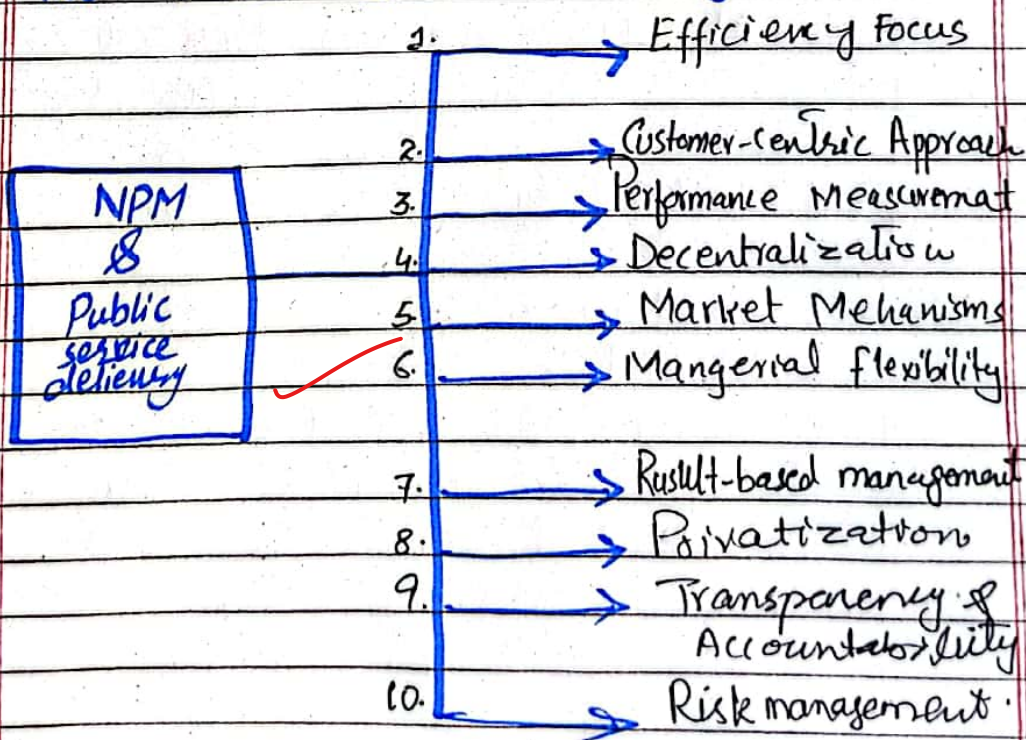 NPM
&
Public
service
delievery
1. Efficiency Focus
2. Customer-Centric Approach
3. Performance Measuremat
4. Decentralization
5. Market Mehanisms
6. Mangerial flexibility
7. Ruslult-based management
8. Privatization
9. Transparency &
Accountability
10. Risk management.